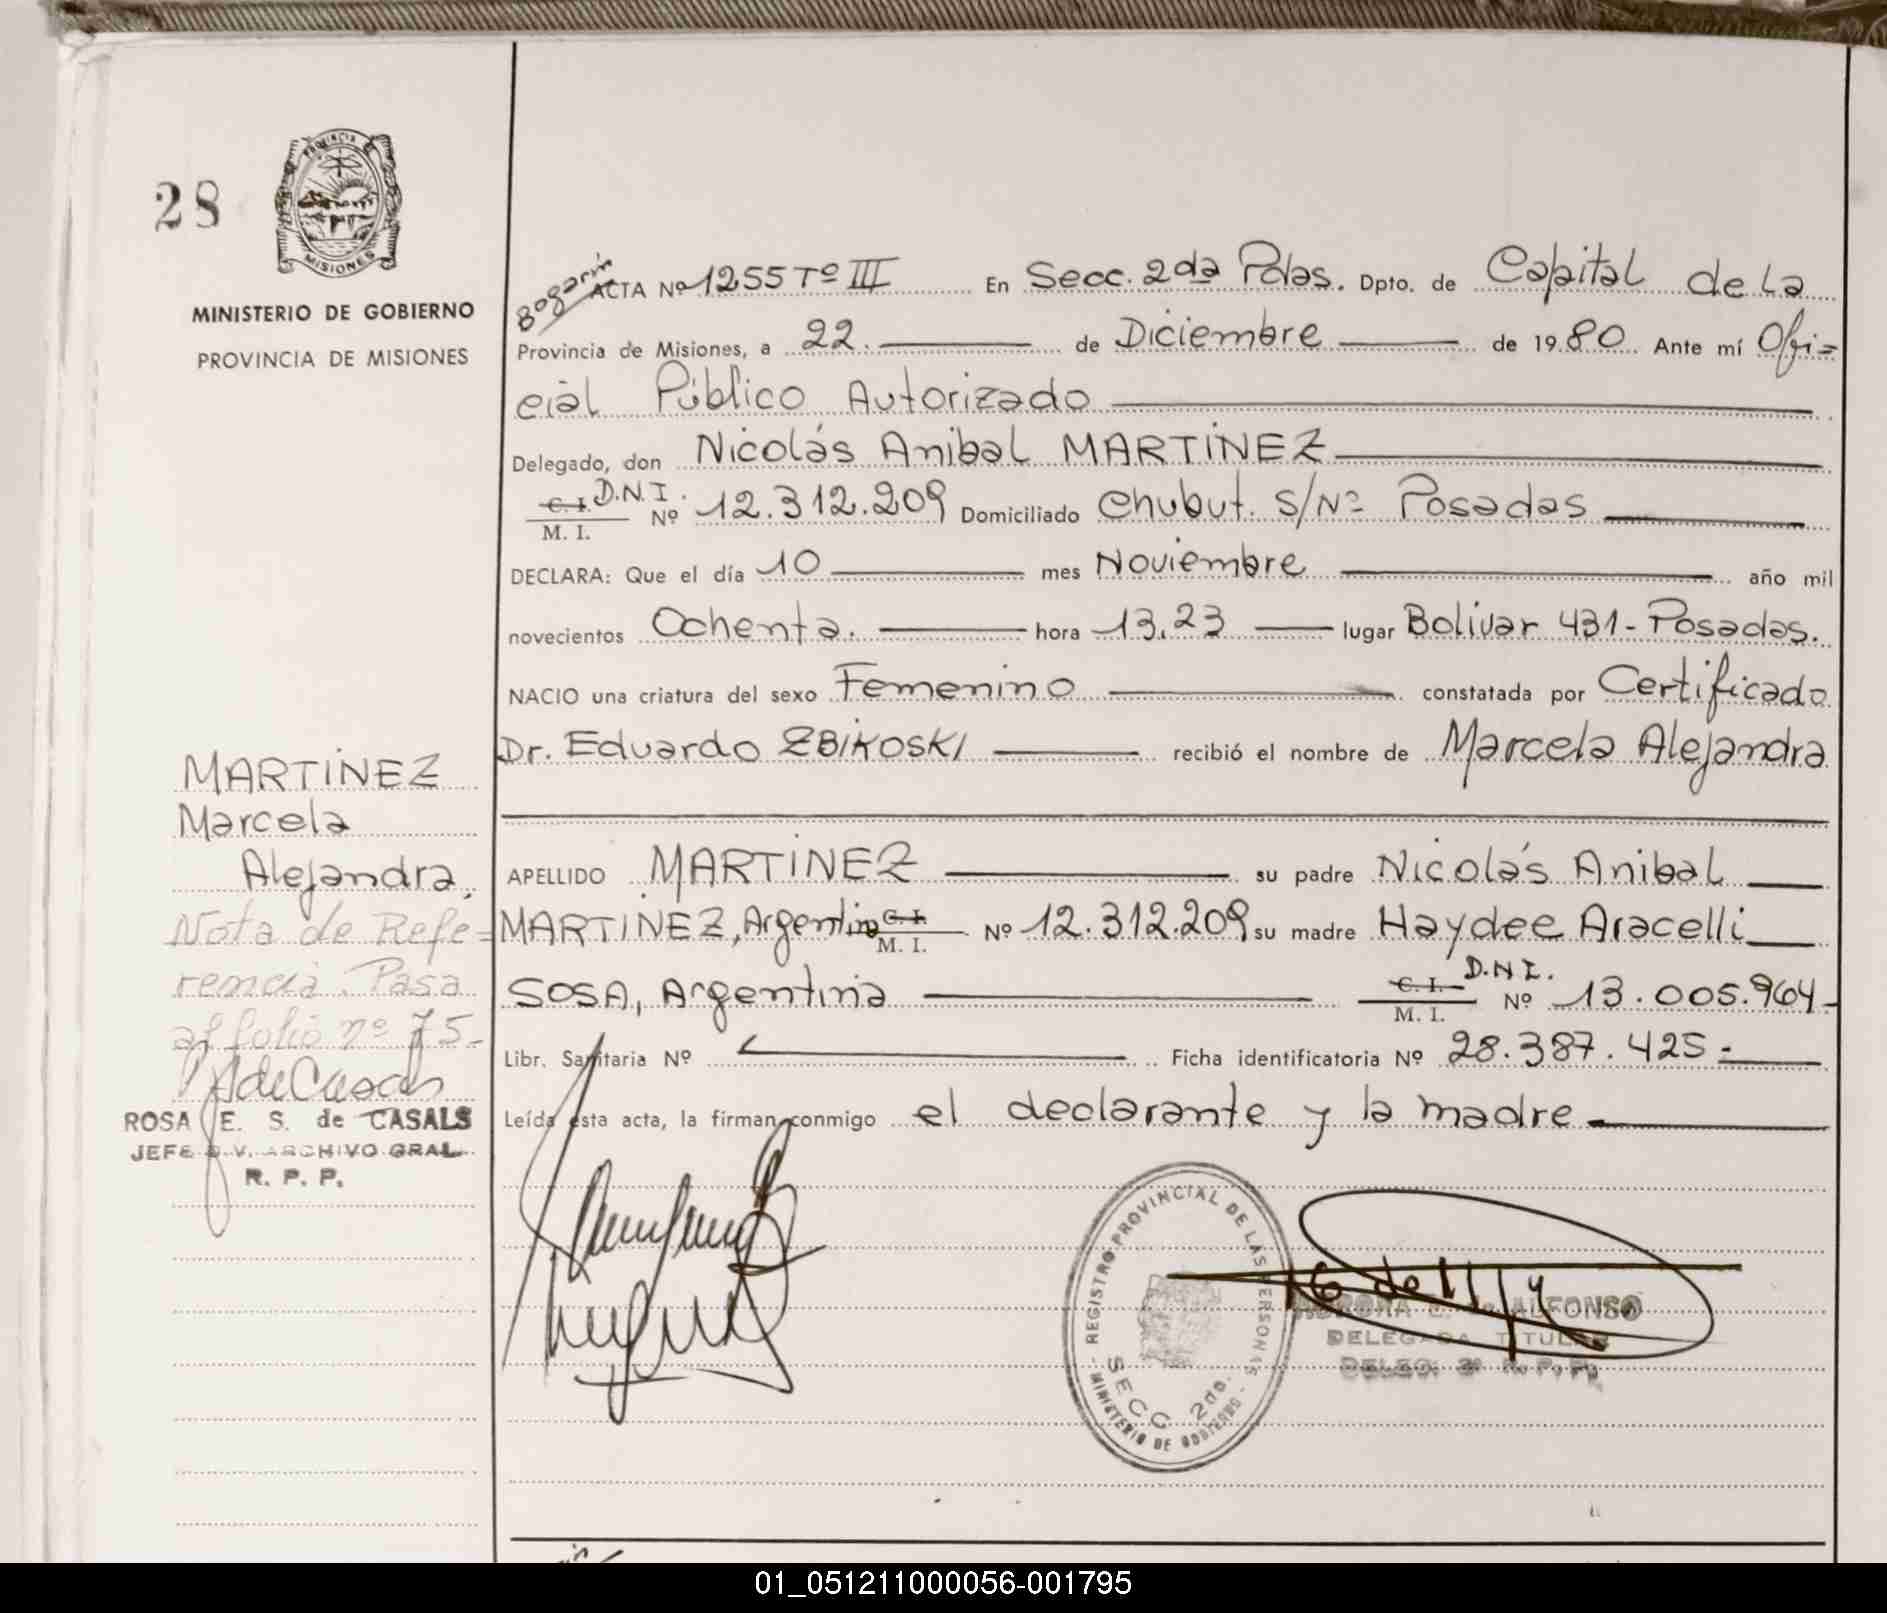 28
PROVINCIA
MISIONES
MINISTERIO DE GOBIERNO
PROVINCIA DE MISIONES
Bogarin
ACTA Nº 1255 Tº III En Secc. 2da Pdas. Dpto. de Capital de La
Provincia de Misiones, a 22. de Diciembre de 1980 Ante mí Ofi=
cial Público Autorizado
Delegado, don Nicolás Anibal MARTINEZ
C. I. D.N.I. M. I. Nº 12.312.209 Domiciliado Chubut. S/Nº Posadas
DECLARA: Que el día 10 mes Noviembre año mil
novecientos Ochenta. hora 13,23 lugar Bolivar 431- Posadas.
NACIO una criatura del sexo Femenino constatada por Certificado
Dr. Eduardo ZBIKOSKI recibió el nombre de Marcela Alejandra
APELLIDO MARTINEZ su padre Nicolás Anibal
MARTINEZ, Argentino C. I. M. I. Nº 12.312.209 su madre Haydee Aracelli
SOSA, Argentina C. I. D.N.I. M. I. Nº 13.005.964-
Libr. Sanitaria Nº Ficha identificatoria Nº 28.387.425-
Leída esta acta, la firman conmigo el declarante y la madre
MARTINEZ
Marcela
Alejandra,
Nota de Refe=
rencia. Pasa
al folio nº 75-
ROSA E. S. de CASALS
JEFE DIV. ARCHIVO GRAL.
R. P. P.
REGISTRO PROVINCIAL DE LAS PERSONAS
SECC 2da.
MINISTERIO DE GOBIERNO
AURORA E. de ALFONSO
DELEGADA TITULAR
DELEG. R. P. P.
01_051211000056-001795